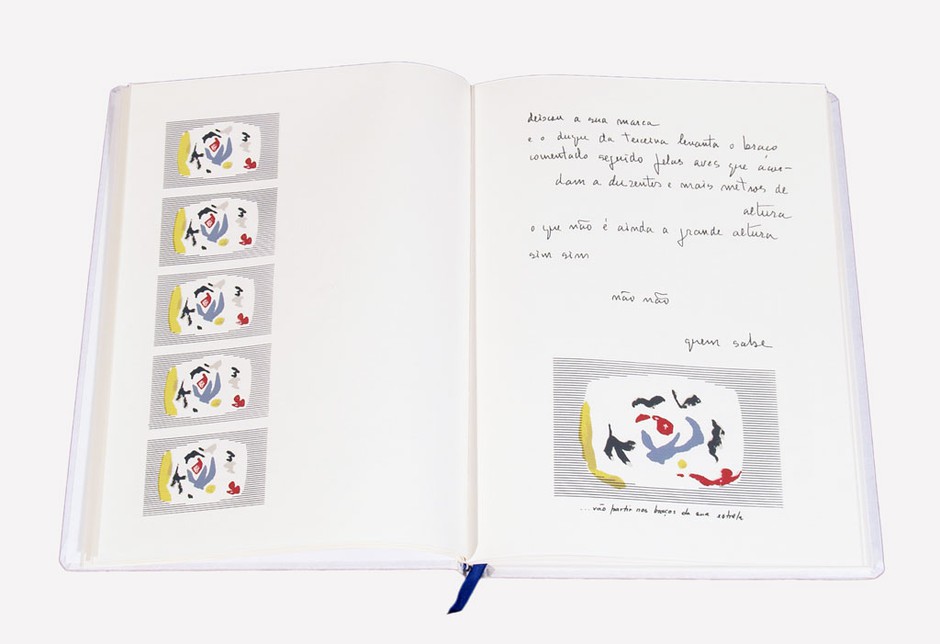 deixou a sua marca
e o duque da terceira levanta o braço
comentado seguido pelas aves que acor-
dam a duzentos e mais metros de
altura
o que não é ainda a grande altura
sim sim
não não
quem sabe
...vão partir nos braços da sua estrela